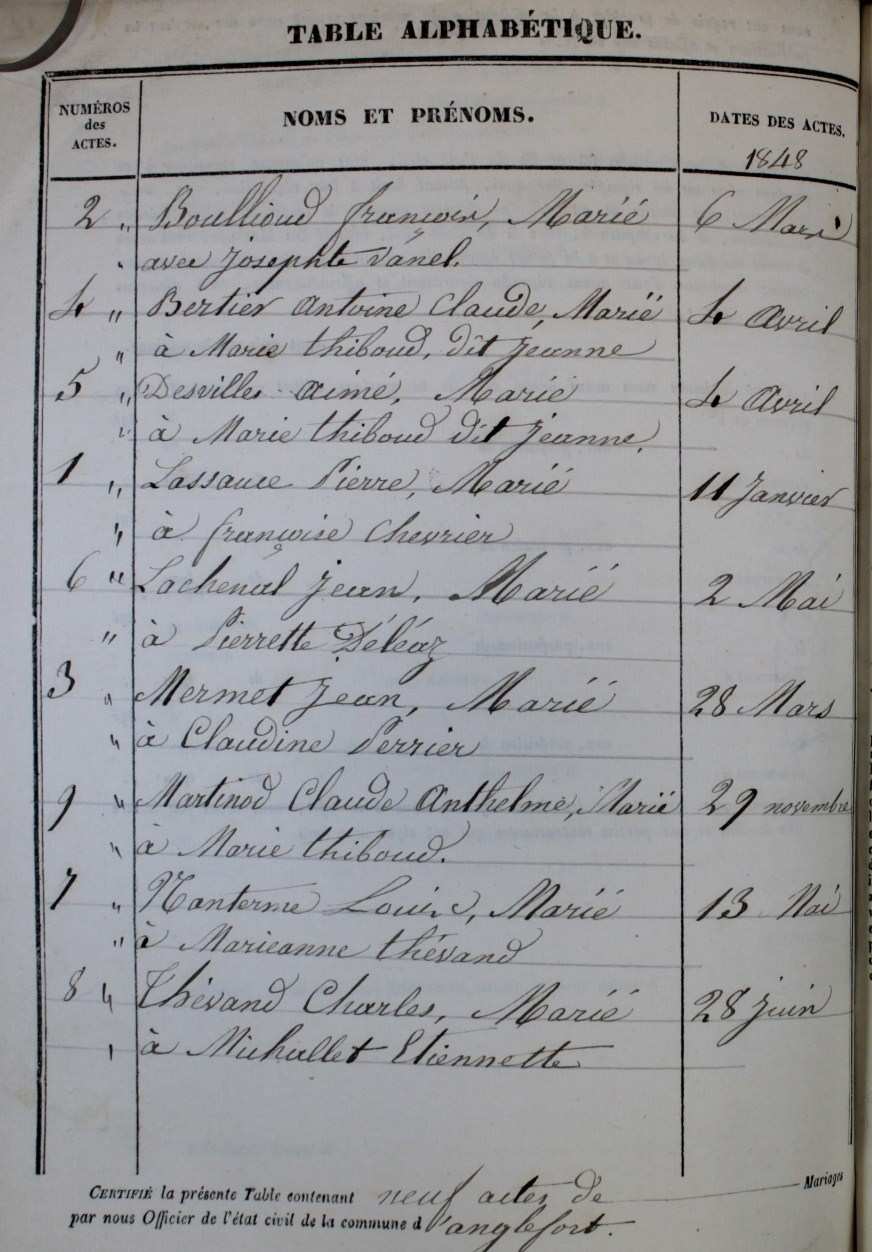 TABLE ALPHABÉTIQUE.
NUMÉROS des ACTES.
NOMS ET PRÉNOMS.
DATES DES ACTES.
1848
2 " Boullioud françois, Marié 6 Mars
" avec Josephte Vanel.
4 " Bertier Antoine Claude, Marié 4 Avril
" à Marie thiboud, dit Jeanne
5 " Desvilles Aimé, Marié 4 Avril
" à Marie thiboud dit Jeanne.
1 " Lassauce Pierre, Marié 11 Janvier
" à françoise Chevrier
6 " Lachenal Jean, Marié 2 Mai
" à Pierrette Déléaz
3 " Mermet Jean, Marié 28 Mars
" à Claudine Perrier
9 " Martinod Claude Anthelme, Marié 29 novembre
" à Marie thiboud.
7 " Nanterme Louis, Marié 13 Mai
" à Marieanne thévand
8 " Thévand Charles, Marié 28 Juin
" à Michallet Etiennette
CERTIFIÉ la présente Table contenant neuf actes de Mariages
par nous Officier de l'état civil de la commune d'anglefort.